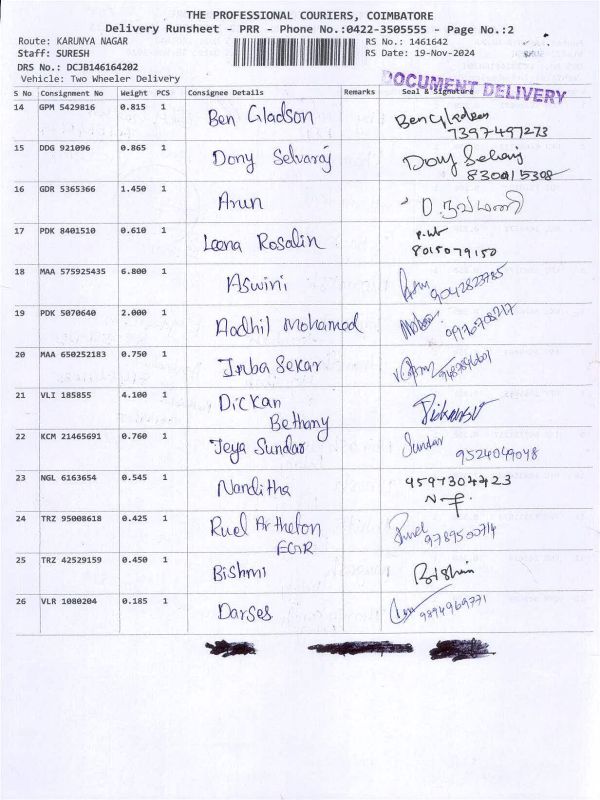 THE PROFESSIONAL COURIERS, COIMBATORE
Delivery Runsheet - PRR - Phone No.:0422-3505555 - Page No.:2
Route: KARUNYA NAGAR RS No.: 1461642
Staff: SURESH RS Date: 19-Nov-2024
DRS No.: DCJB146164202
Vehicle: Two Wheeler Delivery
DOCUMENT DELIVERY
S No Consignment No Weight PCS Consignee Details Remarks Seal & Signature
14 GPM 5429816 0.815 1 Ben Gladson
7397497273
15 DDG 921096 0.865 1 Dony Selvaraj Dony Selvaraj
16 GDR 5365366 1.450 1 Arun D.நவமணி
17 PDK 8401510 0.610 1 Leena Rosalin
8015079150
18 MAA 575925435 6.800 1 Aswini 9042823785
19 PDK 5070640 2.000 1 Aadhil Mohamed
20 MAA 650252183 0.750 1 Inba Sekar
21 VLI 185855 4.100 1 Dickan
Bethany
22 KCM 21465691 0.760 1 Jeya Sundar Sundar
9524049048
23 NGL 6163654 0.545 1 Nanditha 9597304723
24 TRZ 95008618 0.425 1 Ruel Artheton
EGR 9789500714
25 TRZ 42529159 0.450 1 Bishmi
26 VLR 1080204 0.185 1 Darses 9894969771